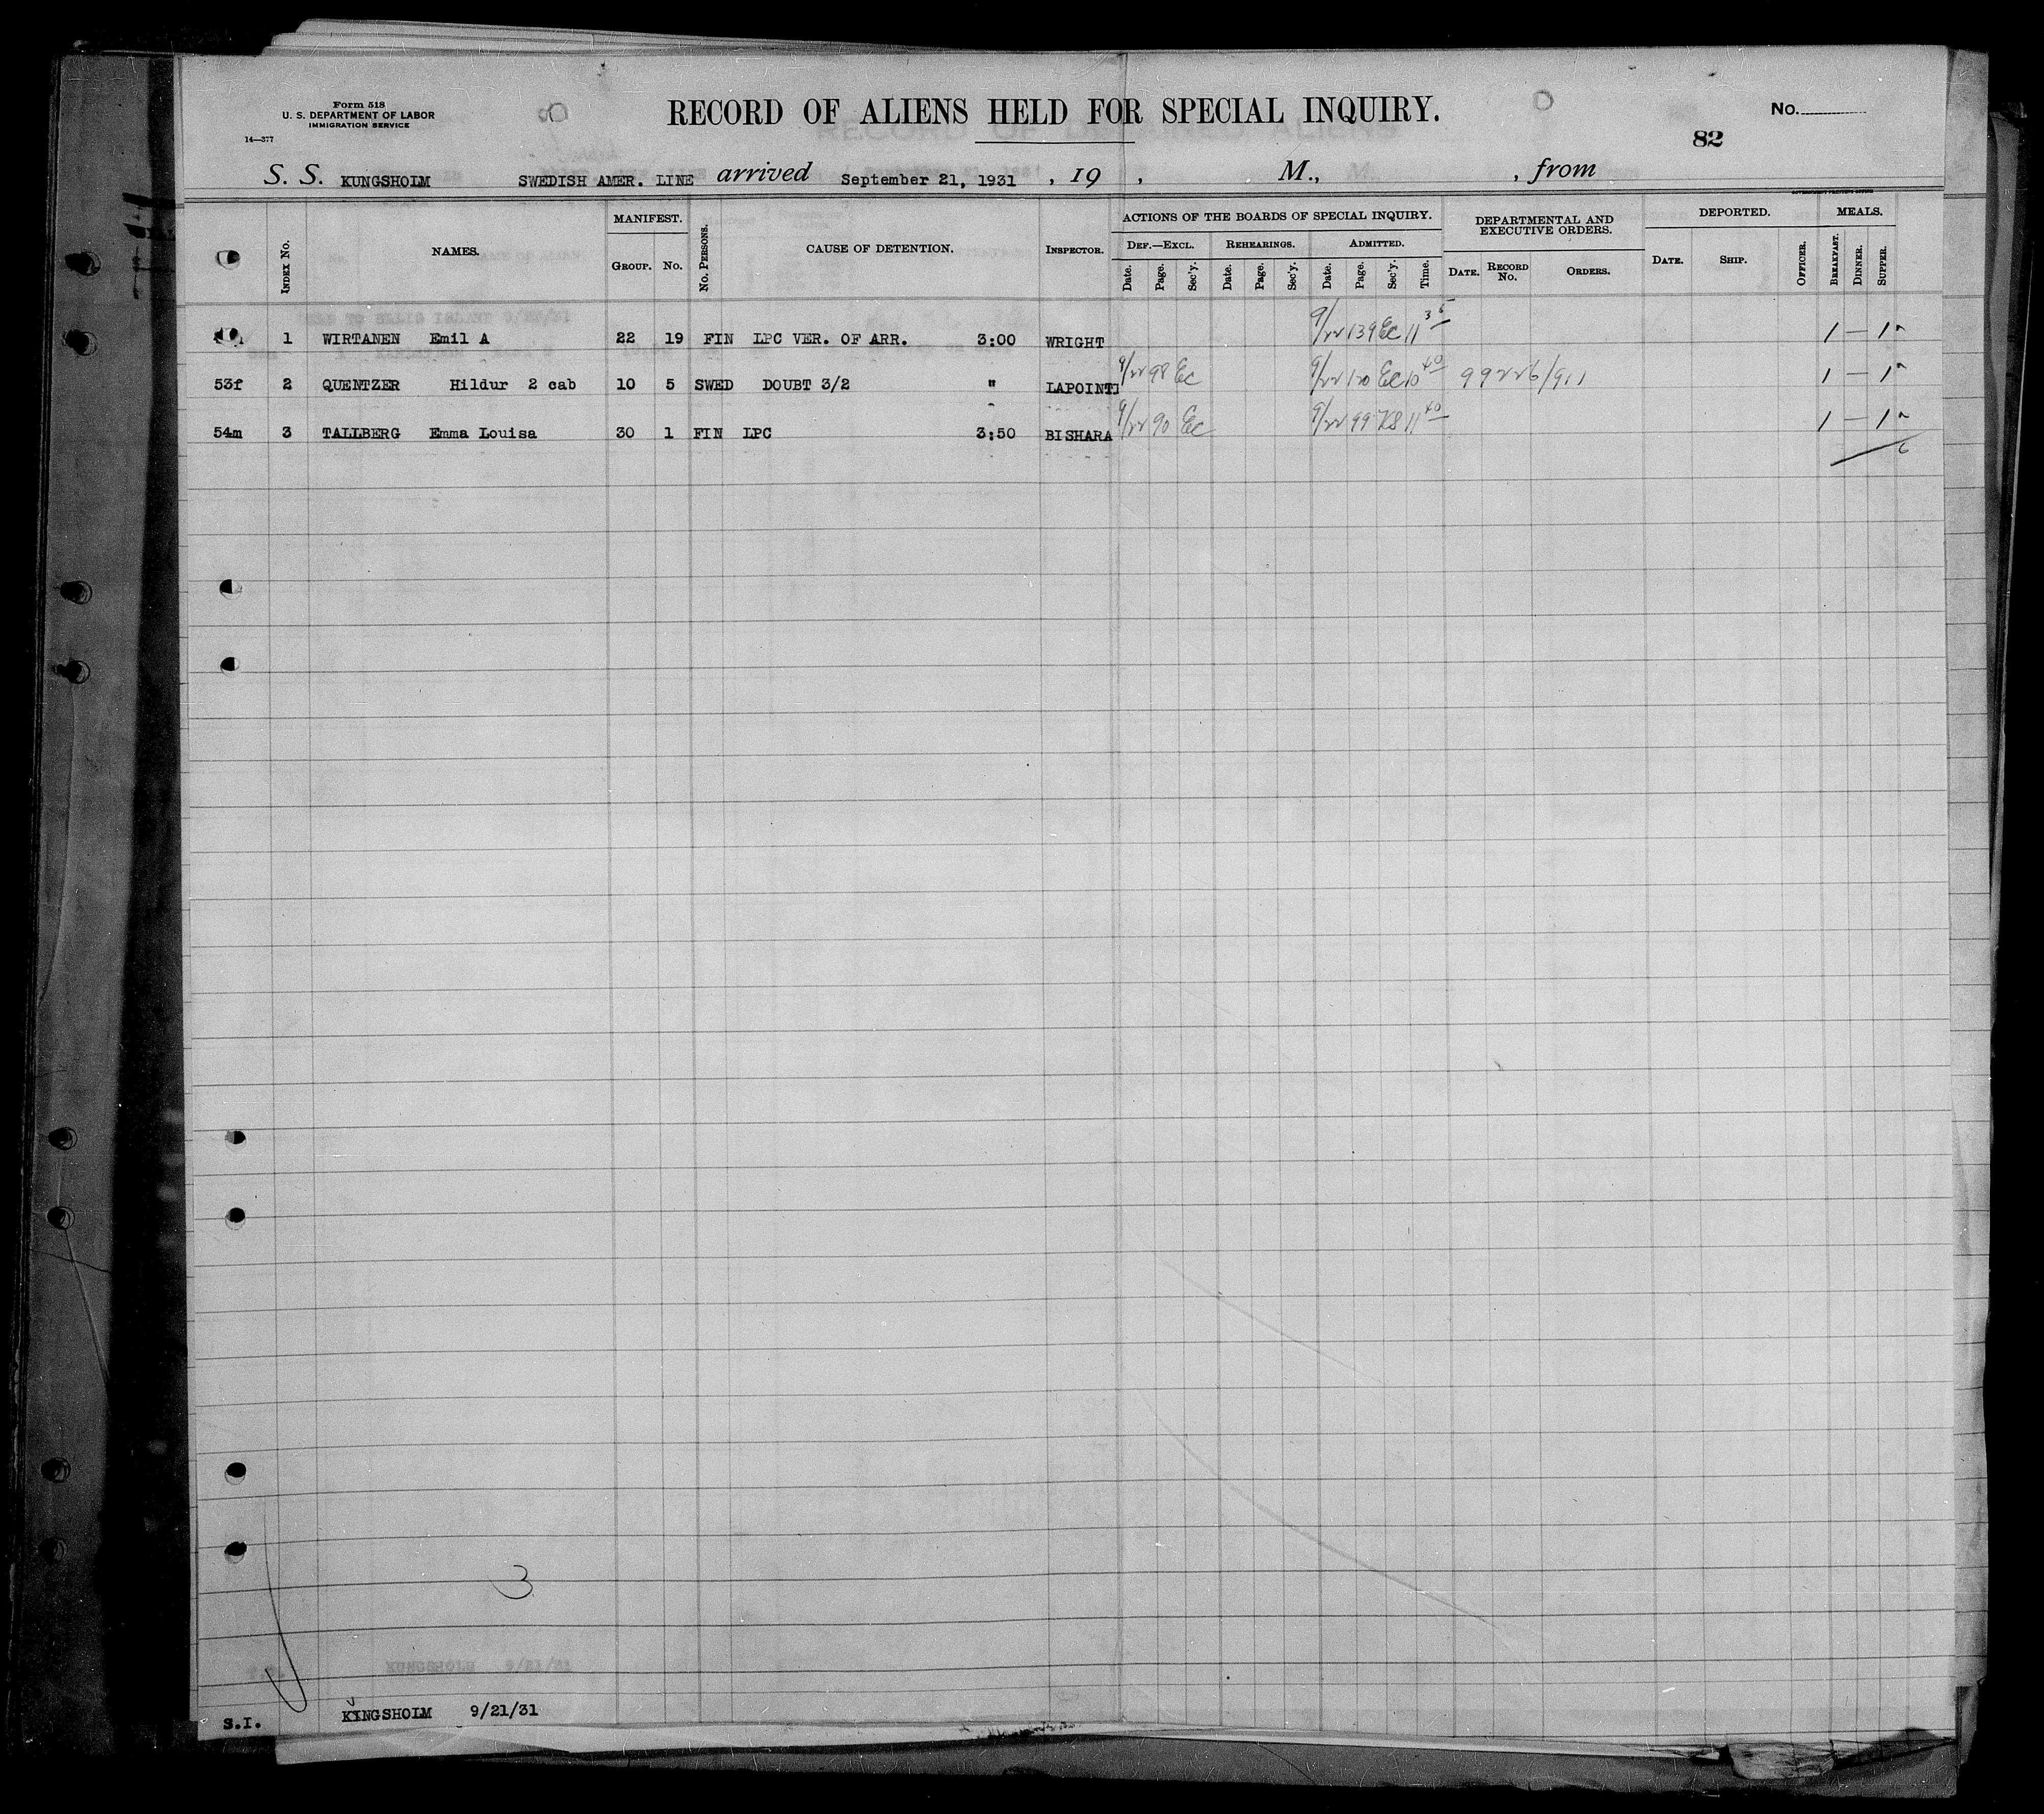 Form 518
U. S. DEPARTMENT OF LABOR
IMMIGRATION SERVICE
14—377
RECORD OF ALIENS HELD FOR SPECIAL INQUIRY.
No.
82
S. S. KUNGSHOLM SWEDISH AMER. LINE arrived September 21, 1931 , 19 , M., , from
INDEX No. NAMES. MANIFEST. GROUP. No. No. PERSONS. CAUSE OF DETENTION. INSPECTOR. ACTIONS OF THE BOARDS OF SPECIAL INQUIRY. DEF.—EXCL. Date. Page. Sec'y. REHEARINGS. Date. Page. Sec'y. ADMITTED. Date. Page. Sec'y. Time. DEPARTMENTAL AND EXECUTIVE ORDERS. DATE. RECORD No. ORDERS. DEPORTED. DATE. SHIP. OFFICER. MEALS. BREAKFAST. DINNER. SUPPER.
1 WIRTANEN Emil A 22 19 FIN LPC VER. OF ARR. 3:00 WRIGHT 9/22 139 EC 11 35 1 — 1
53f 2 QUENTZER Hildur 2 cab 10 5 SWED DOUBT 3/2 " LAPOINT 9/22 98 EC 9/22 120 EC 10 40 99226/911 1 — 1
54m 3 TALLBERG Emma Louisa 30 1 FIN LPC 3:50 BISHARA 9/22 90 EC 9/22 99 KS 11 40 1 — 1
6
3
S.I. KINGSHOLM 9/21/31